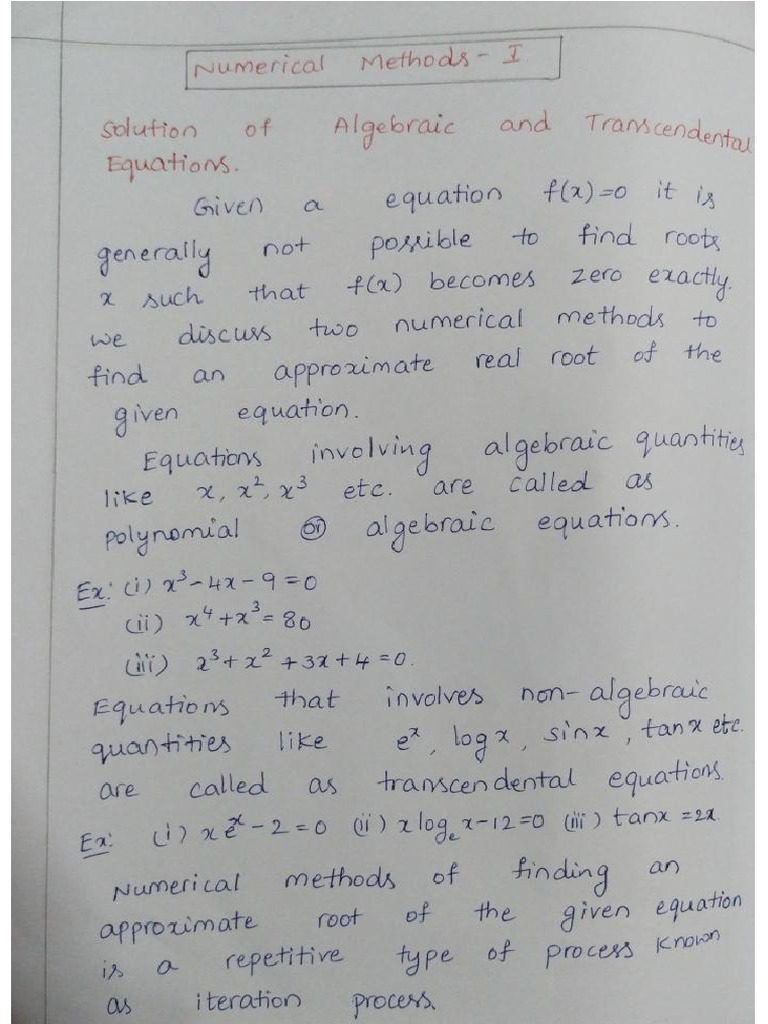 Numerical Methods - I
Solution of Algebraic and Transcendental
Equations.
Given a equation f(x)=0 it is
generally not possible to find roots
x such that f(x) becomes zero exactly.
we discuss two numerical methods to
find an approximate real root of the
given equation.
Equations involving algebraic quantities
like x, x², x³ etc. are called as
polynomial (or) algebraic equations.
Ex: (i) x³-4x-9=0
(ii) x⁴+x³=80
(iii) x³+x²+3x+4=0.
Equations that involves non-algebraic
quantities like eˣ, log x, sinx, tanx etc.
are called as transcendental equations.
Ex: (i) xeˣ-2=0 (ii) x logₑx-12=0 (iii) tanx=2x.
Numerical methods of finding an
approximate root of the given equation
is a repetitive type of process known
as iteration process.